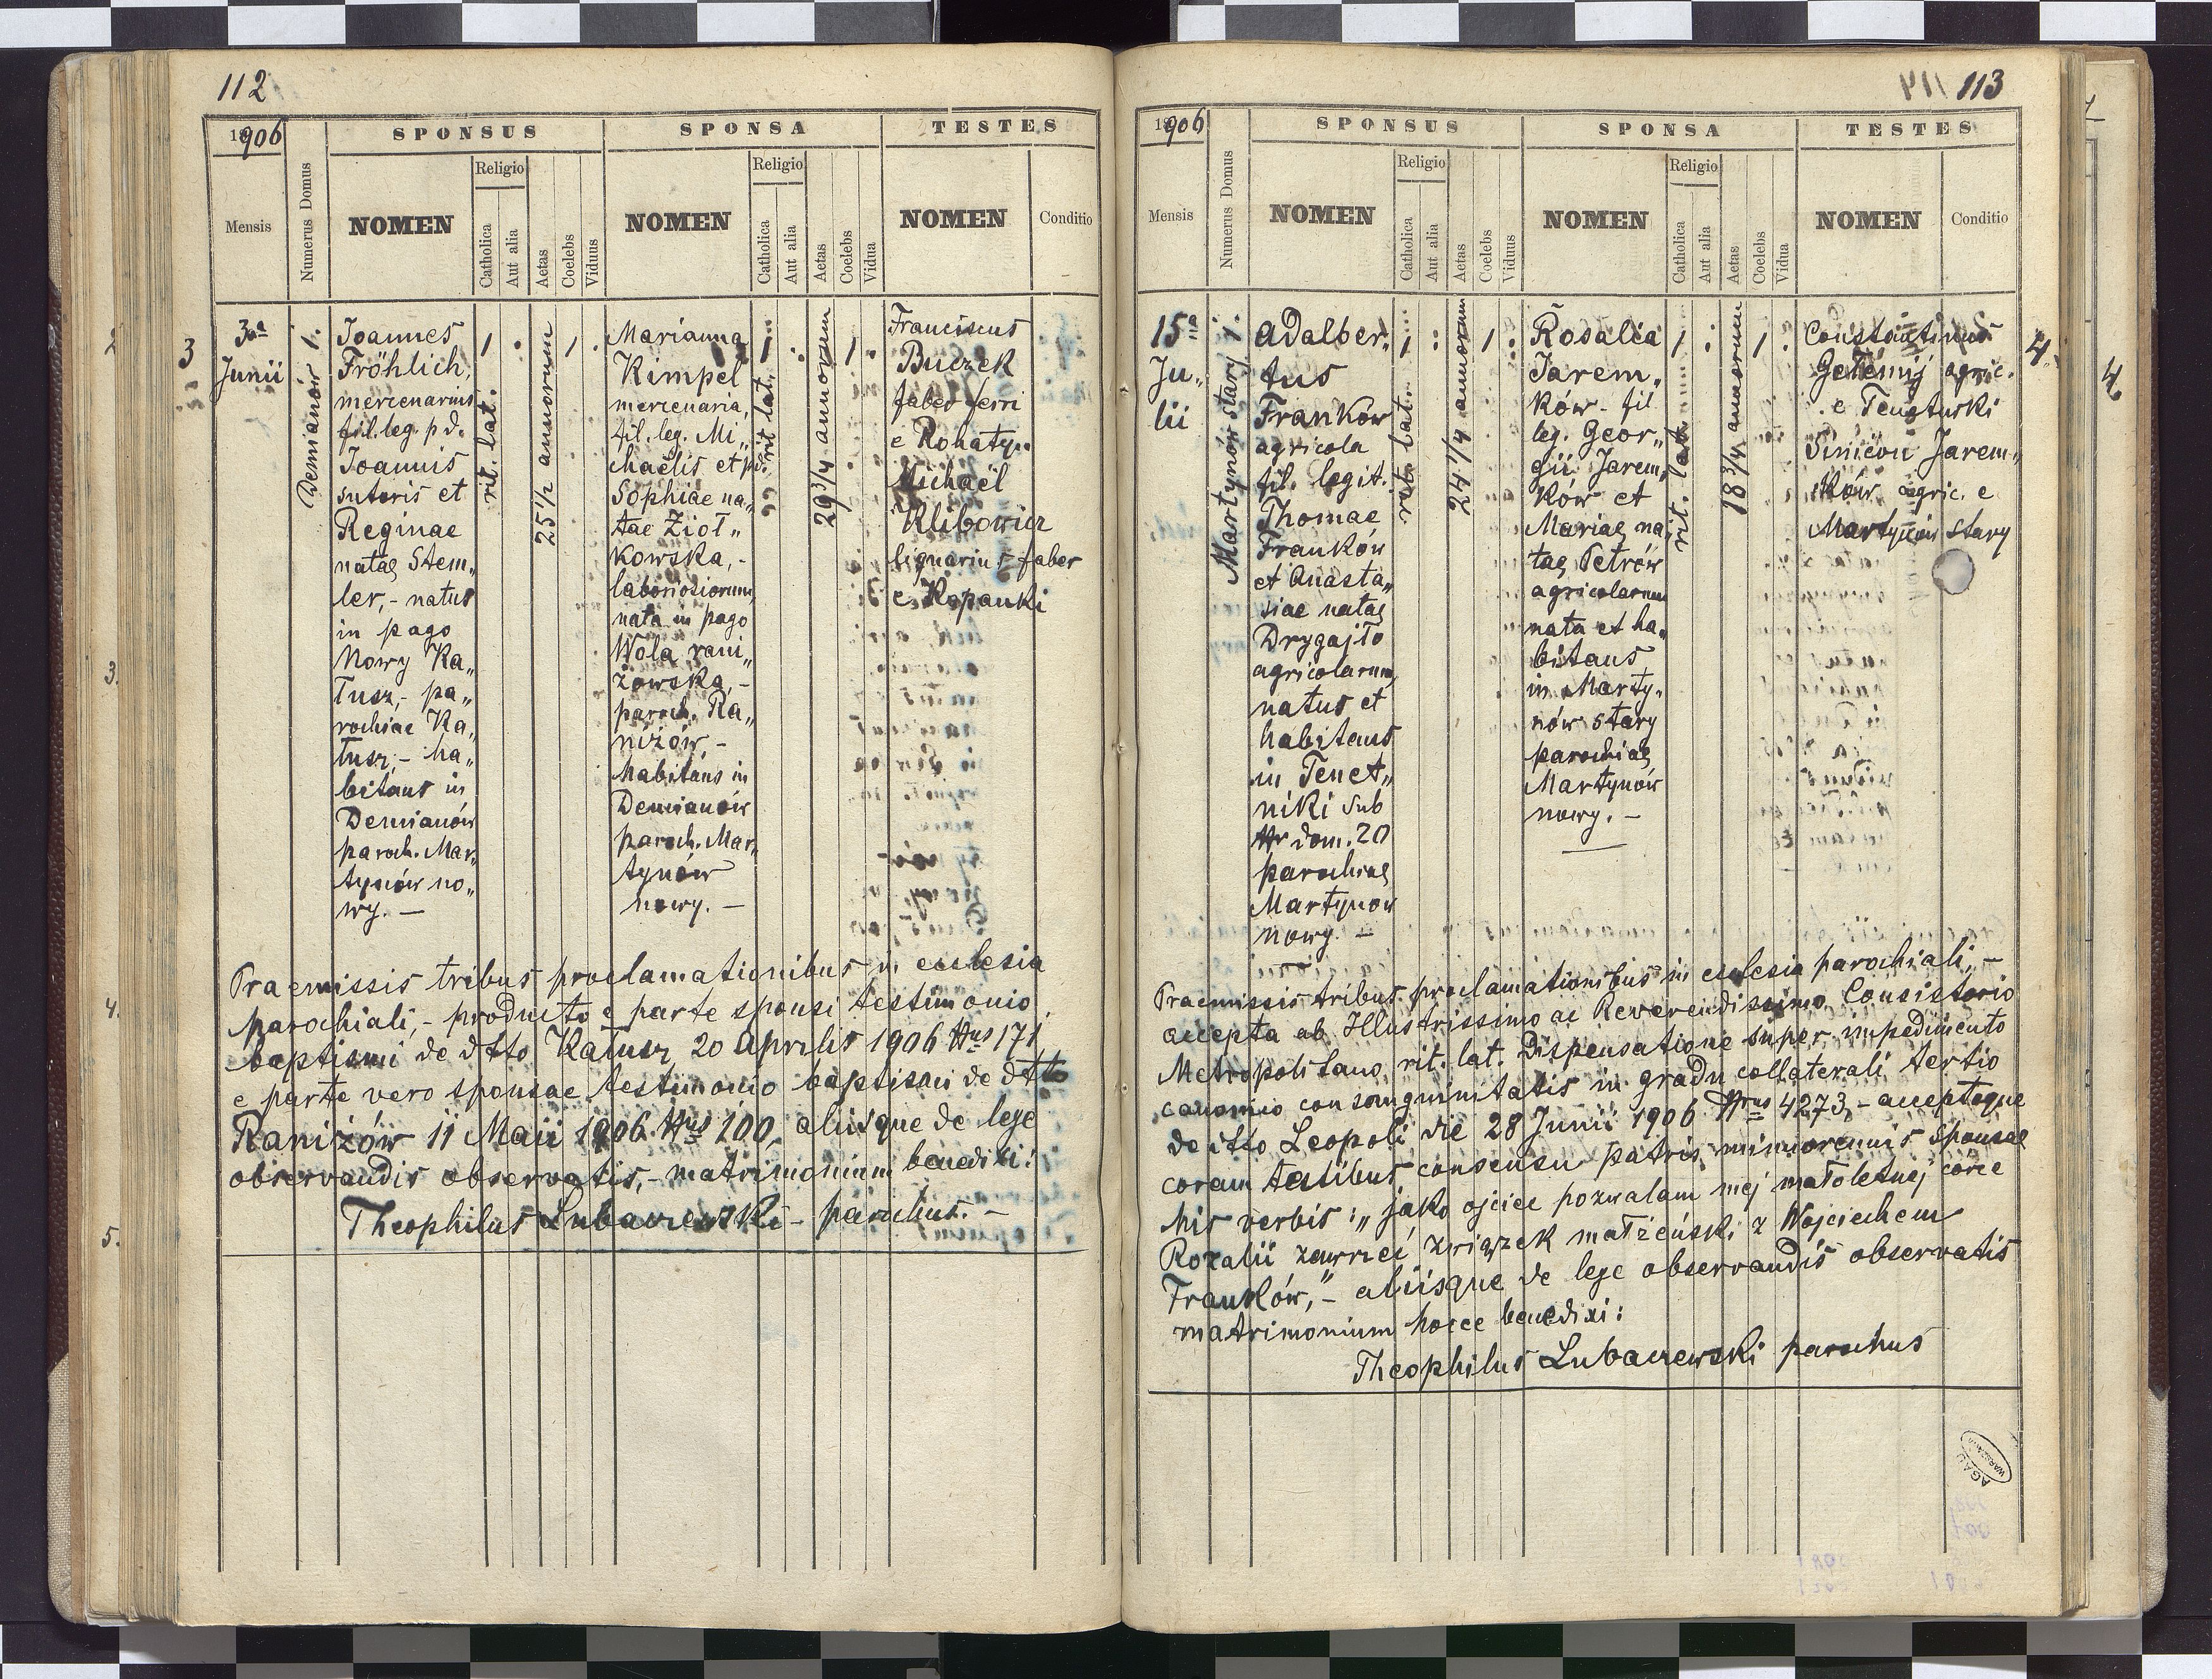 112
1906
SPONSUS
SPONSA
TESTES
Mensis
Numerus Domus
NOMEN
Religio
Catholica
Aut alia
Aetas
Coelebs
Viduus
NOMEN
Religio
Catholica
Aut alia
Aetas
Coelebs
Vidua
NOMEN
Conditio
3
3a
Junii
Demianów 1.
Joannes
Fröhlich,
mercenarius
fil. leg. p d.
Joannis
sutoris et
Reginae
natae Stem„
ler,- natus
in pago
Nowy Ka„
łusz,- pa„
rochiae Ka„
łusz,- ha„
bitans in
Demianów
paroch. Mar„
tynów no„
wy. —
1
rit. lat.
25 1/2 annorum
1
Marianna
Kimpel
mercenaria,
fil. leg. Mi„
chaëlis et pd.
Sophiae na„
tae Zioł„
kowska,-
laboriosiorum,
nata in pago
Wola rani„
żowska,-
paroch. Ra„
niżów,-
habitans in
Demianów
paroch. Mar„
tynów
nowy. —
1
rit. lat.
29 3/4 annorum
1
Franciscus
Buczek
faber ferri
e Rohatyn
Michaël
Klibowicz
lignarius faber
e Kopanki
Praemissis tribus proclamationibus in ecclesia
parochiali,- producto e parte sponsi testimonio
baptismi de dtto Kałusz 20 Aprilis 1906 Nrus 171
e parte vero sponsae testimonio baptismi de dtto
Raniżów 11 Maii 1906 Nrus 100, aliisque de lege
observandis observatis,- matrimonium benedixi:
Theophilus Lubaczewski - parochus. —
113
1906
SPONSUS
SPONSA
TESTES
Mensis
Numerus Domus
NOMEN
Religio
Catholica
Aut alia
Aetas
Coelebs
Viduus
NOMEN
Religio
Catholica
Aut alia
Aetas
Coelebs
Vidua
NOMEN
Conditio
15a
Ju„
lii
Martynów stary 1.
Adalber„
tus
Franków
agricola
fil. legit.
Thomae
Franków
et Anasta„
siae natae
Drygajło
agricolarum,
natus et
habitans
in Tenet„
niki sub
Nr dom. 20
parochiae
Martynow
nowy. —
1
rit. lat.
24 1/4 annorum
1
Rosalia
Jarem„
ków - fil
leg. Geor„
gii Jarem„
ków et
Mariae na„
tae Petrów
agricolarum
nata et ha„
bitans
in Marty„
nów stary
parochiae
Martynów
nowy. —
1
rit. lat.
18 3/4 annorum
1
Constantinus
agric.
e
Jarem„
ków agric. e
Martynów stary
4.
4
Praemissis tribus proclamationibus in ecclesia parochiali,-
accepta ab Illustrissimo ac Reverendissimo Consistorio
Metropolitano rit. lat. Dispensatione super impedimento
canonico consanguinitatis in gradu collaterali tertio
de dtto Leopoli die 28 Junii 1906 Nrus 4273,- acceptoque
coram testibus consensu patris minorennis sponsae
his verbis: „jako ojciec pozwalam mej małoletniej córce
Rozalii zawrzeć związek małżeński z Wojciechem
Franków,"- aliisque de lege observandis observatis
matrimonium hocce benedixi:
Theophilus Lubaczewski parochus
AGAD
WARSZAWA
3.
4.
5.